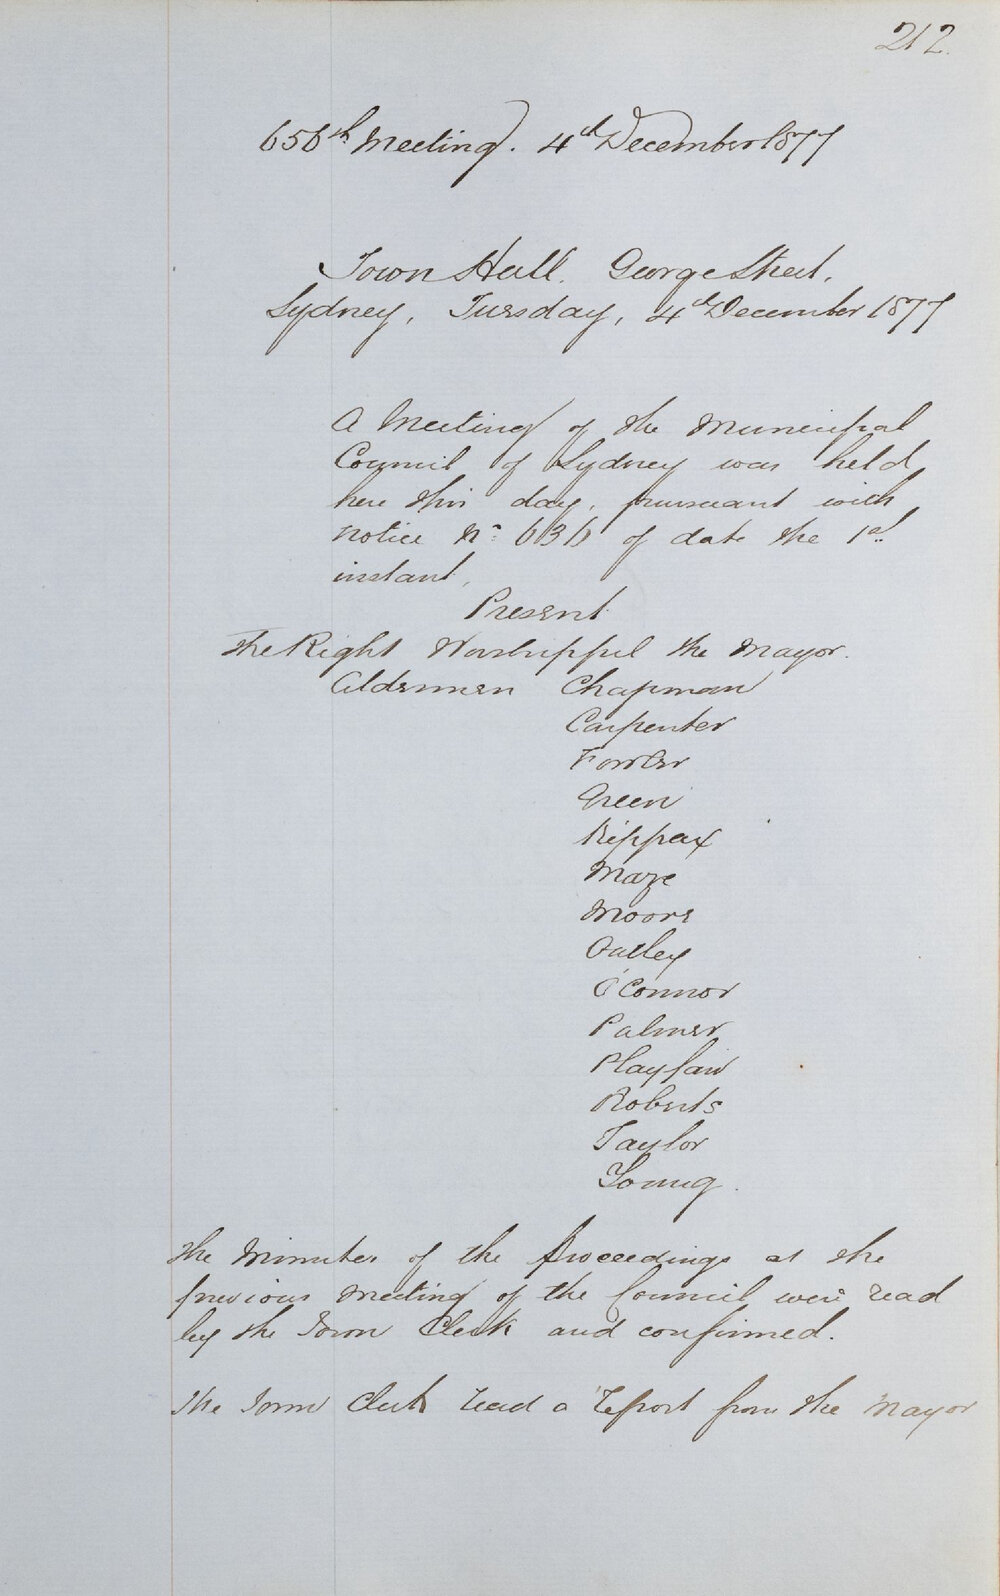 212.
656th Meeting. 4th December 1877
Town Hall. George Street.
Sydney, Tuesday, 4th December 1877
A Meeting of the Municipal
Council of Sydney was held
here this day, pursuant with
notice No. 636 of date the 1st
instant,
Present
The Right Worshipful the Mayor.
Aldermen Chapman
Carpenter
Fowler
Green
Kippax
Maze
Moore
Oatley
O'Connor
Palmer
Playfair
Roberts
Taylor
Young.
The Minutes of the Proceedings at the
previous Meeting of the Council were read
by the Town Clerk and confirmed.
The Town Clerk read a Report from the Mayor